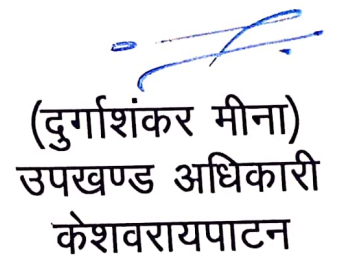 (दुर्गाशंकर मीना)
उपखण्ड अधिकारी
केशवरायपाटन